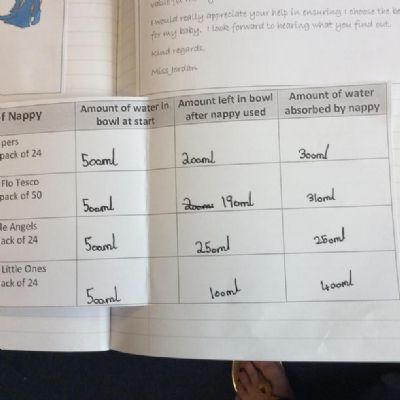 I would really appreciate your help in ensuring I choose the be
for my baby. I look forward to hearing what you find out.
Kind regards,
Miss Jordan
f Nappy
Amount of water in
bowl at start
Amount left in bowl
after nappy used
Amount of water
absorbed by nappy
pers
pack of 24
500ml
200ml
300ml
Flo Tesco
pack of 50
500ml
200ml 190ml
310ml
le Angels
ack of 24
500ml
250ml
250ml
Little Ones
ack of 24
500ml
100ml
400ml